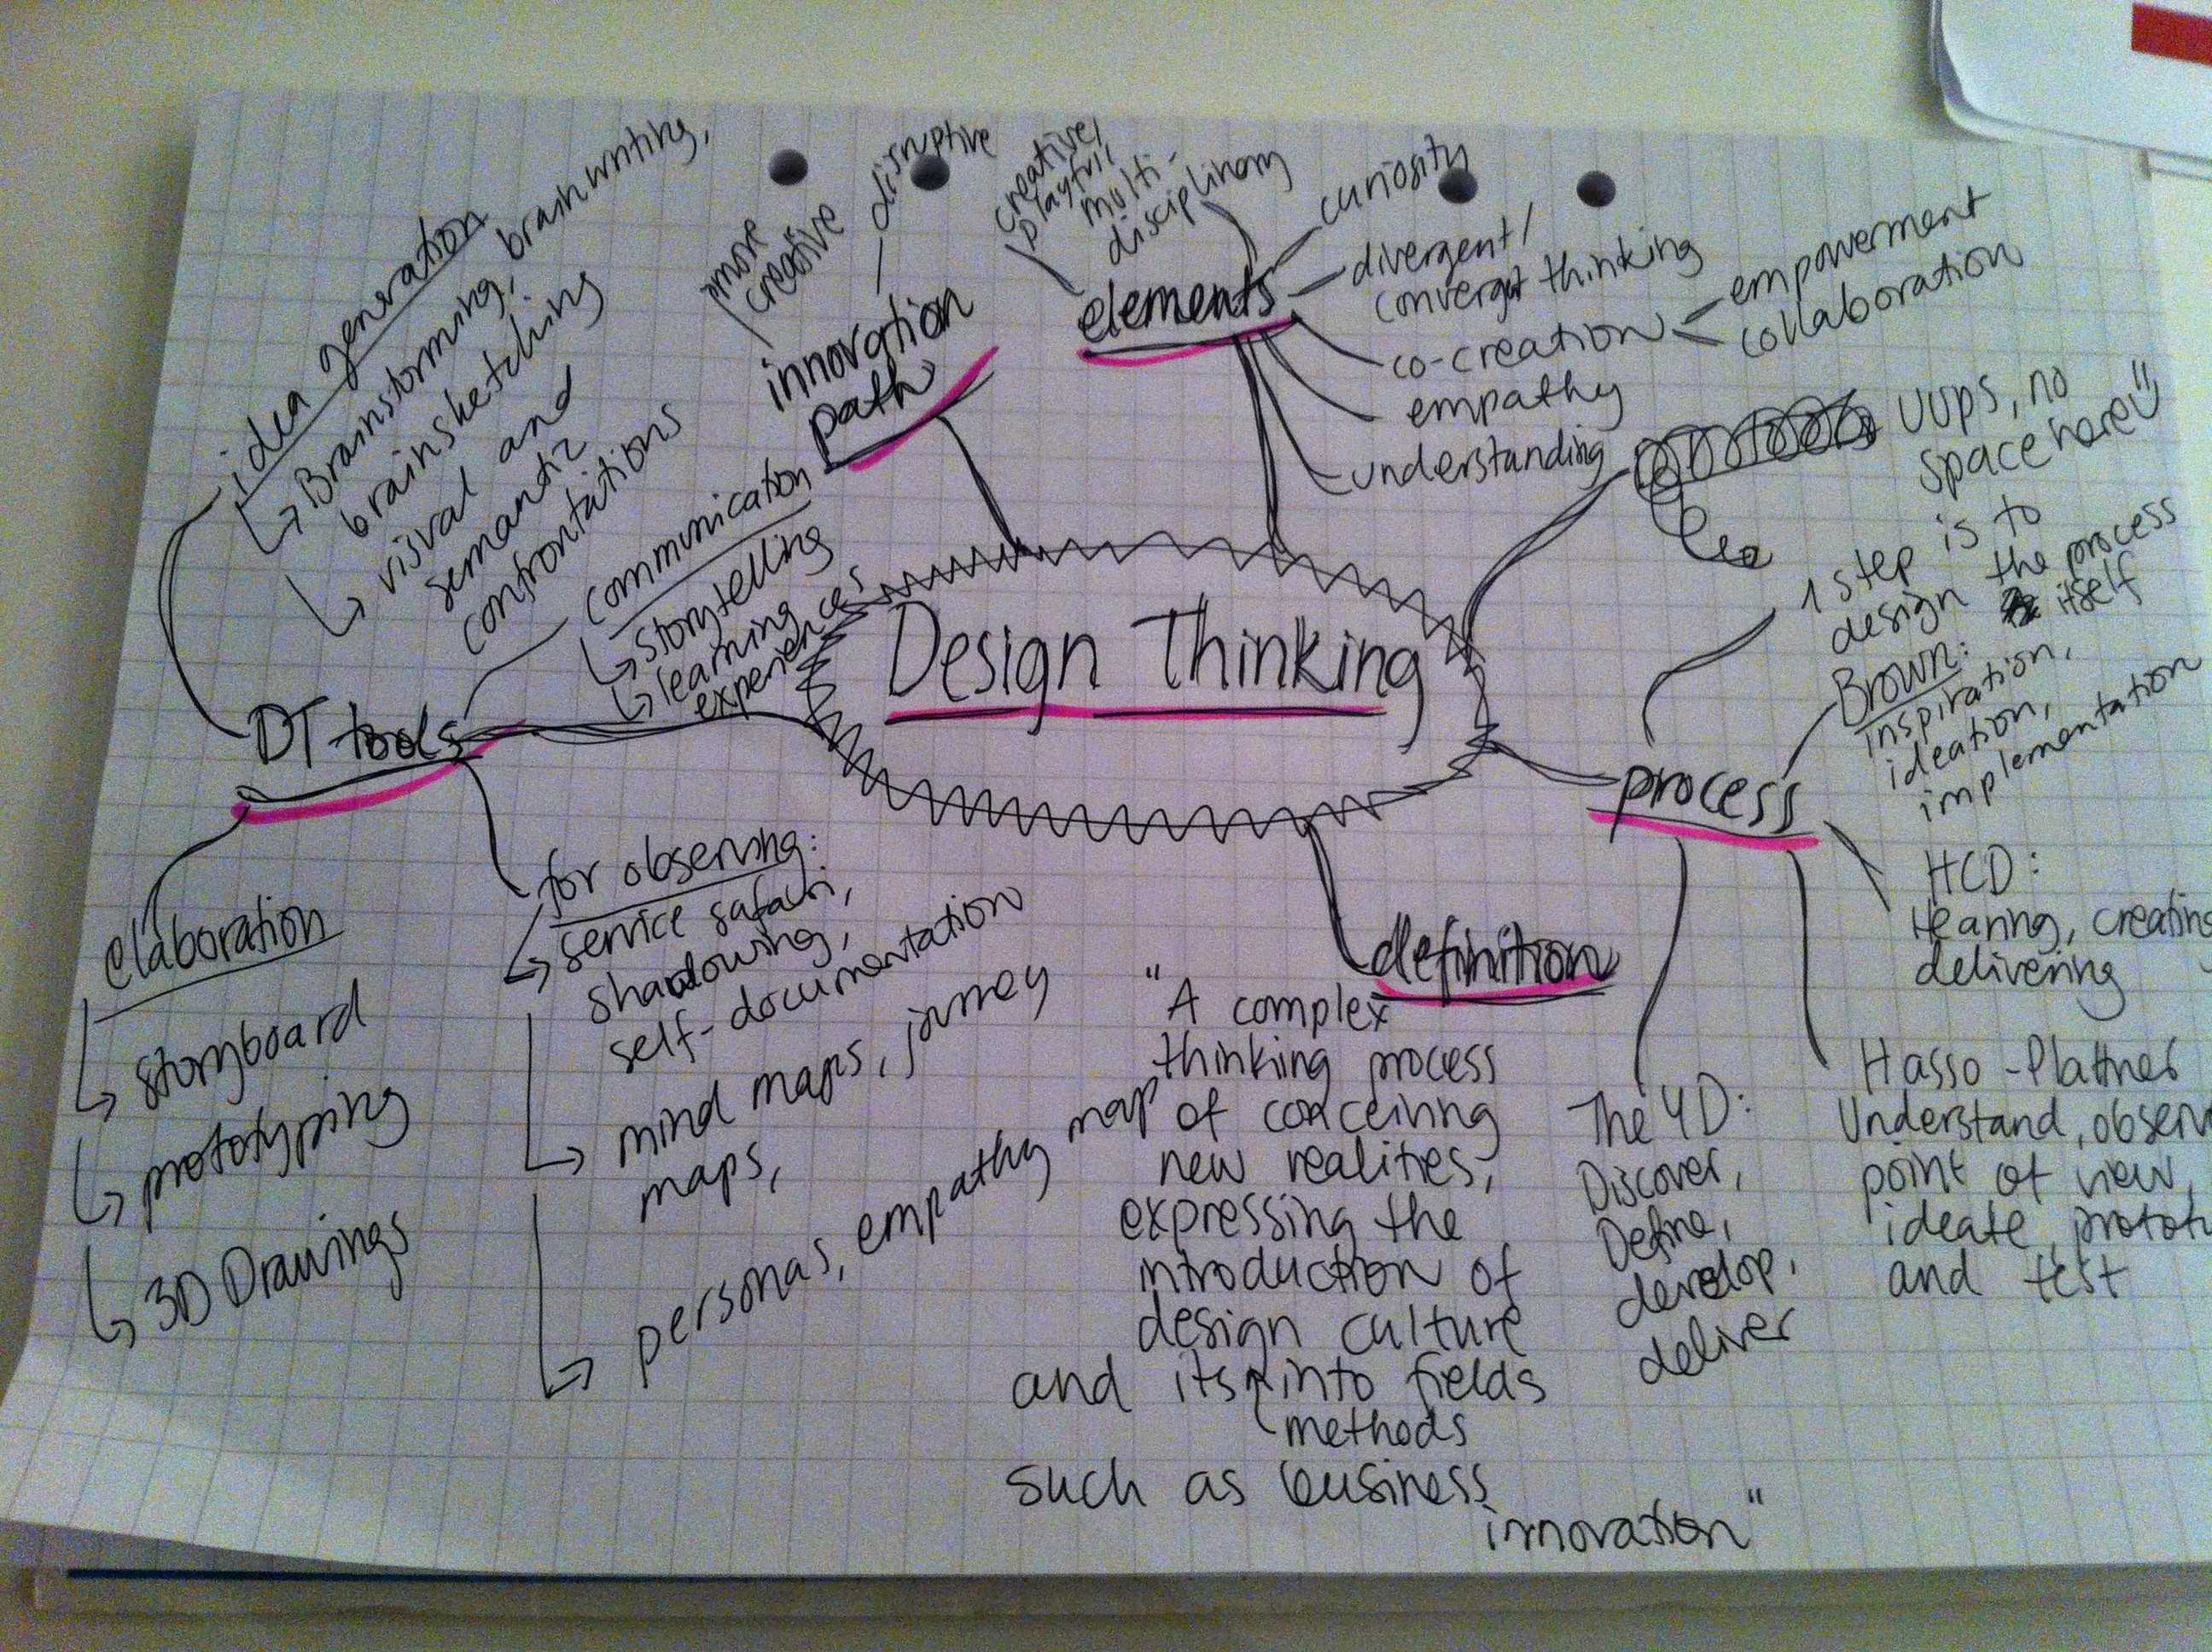 Design Thinking
innovation
path
more
creative
disruptive
elements
creative,
playful
multi-
disciplinary
curiosity
divergent/
convergent thinking
co-creation
empowerment
collaboration
empathy
understanding
uups, no
space here
process
1 step is to
design the process
itself
Brown:
inspiration,
ideation,
implementation
HCD:
Hearing, creating
delivering
Hasso-Plattner
Understand, observ
point of view,
ideate, prototy
and test
The 4D:
Discover,
Define,
develop,
deliver
definition
"A complex
thinking process
of conceiving
new realities,
expressing the
introduction of
design culture
and its into fields
methods
such as business
innovation"
DT tools
idea generation
Brainstorming, brainwriting,
brainsketching
visual and
semantic
confrontations
communication
storytelling
learning
experiences
for observing:
service safari,
shadowing,
self-documentation
mind maps, journey
maps,
personas, empathy map
elaboration
storyboard
prototyping
3D Drawings